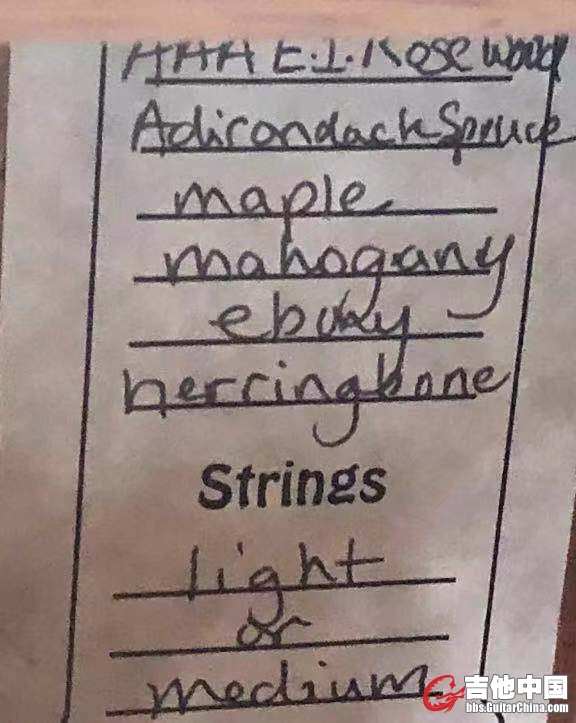 AAA E.I. Rosewood
Adirondack Spruce
maple
mahogany
ebony
herringbone
Strings
light
or
medium
吉他中国
bbs.GuitarChina.com